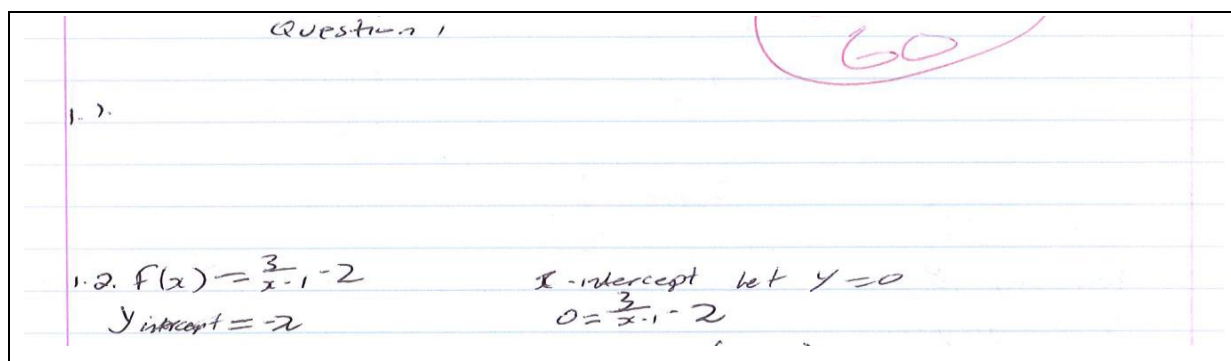 Question 1
60
1. 1.
1.2. f(x) = 3/(x-1) - 2
x-intercept let y = 0
y intercept = -2
0 = 3/(x-1) - 2